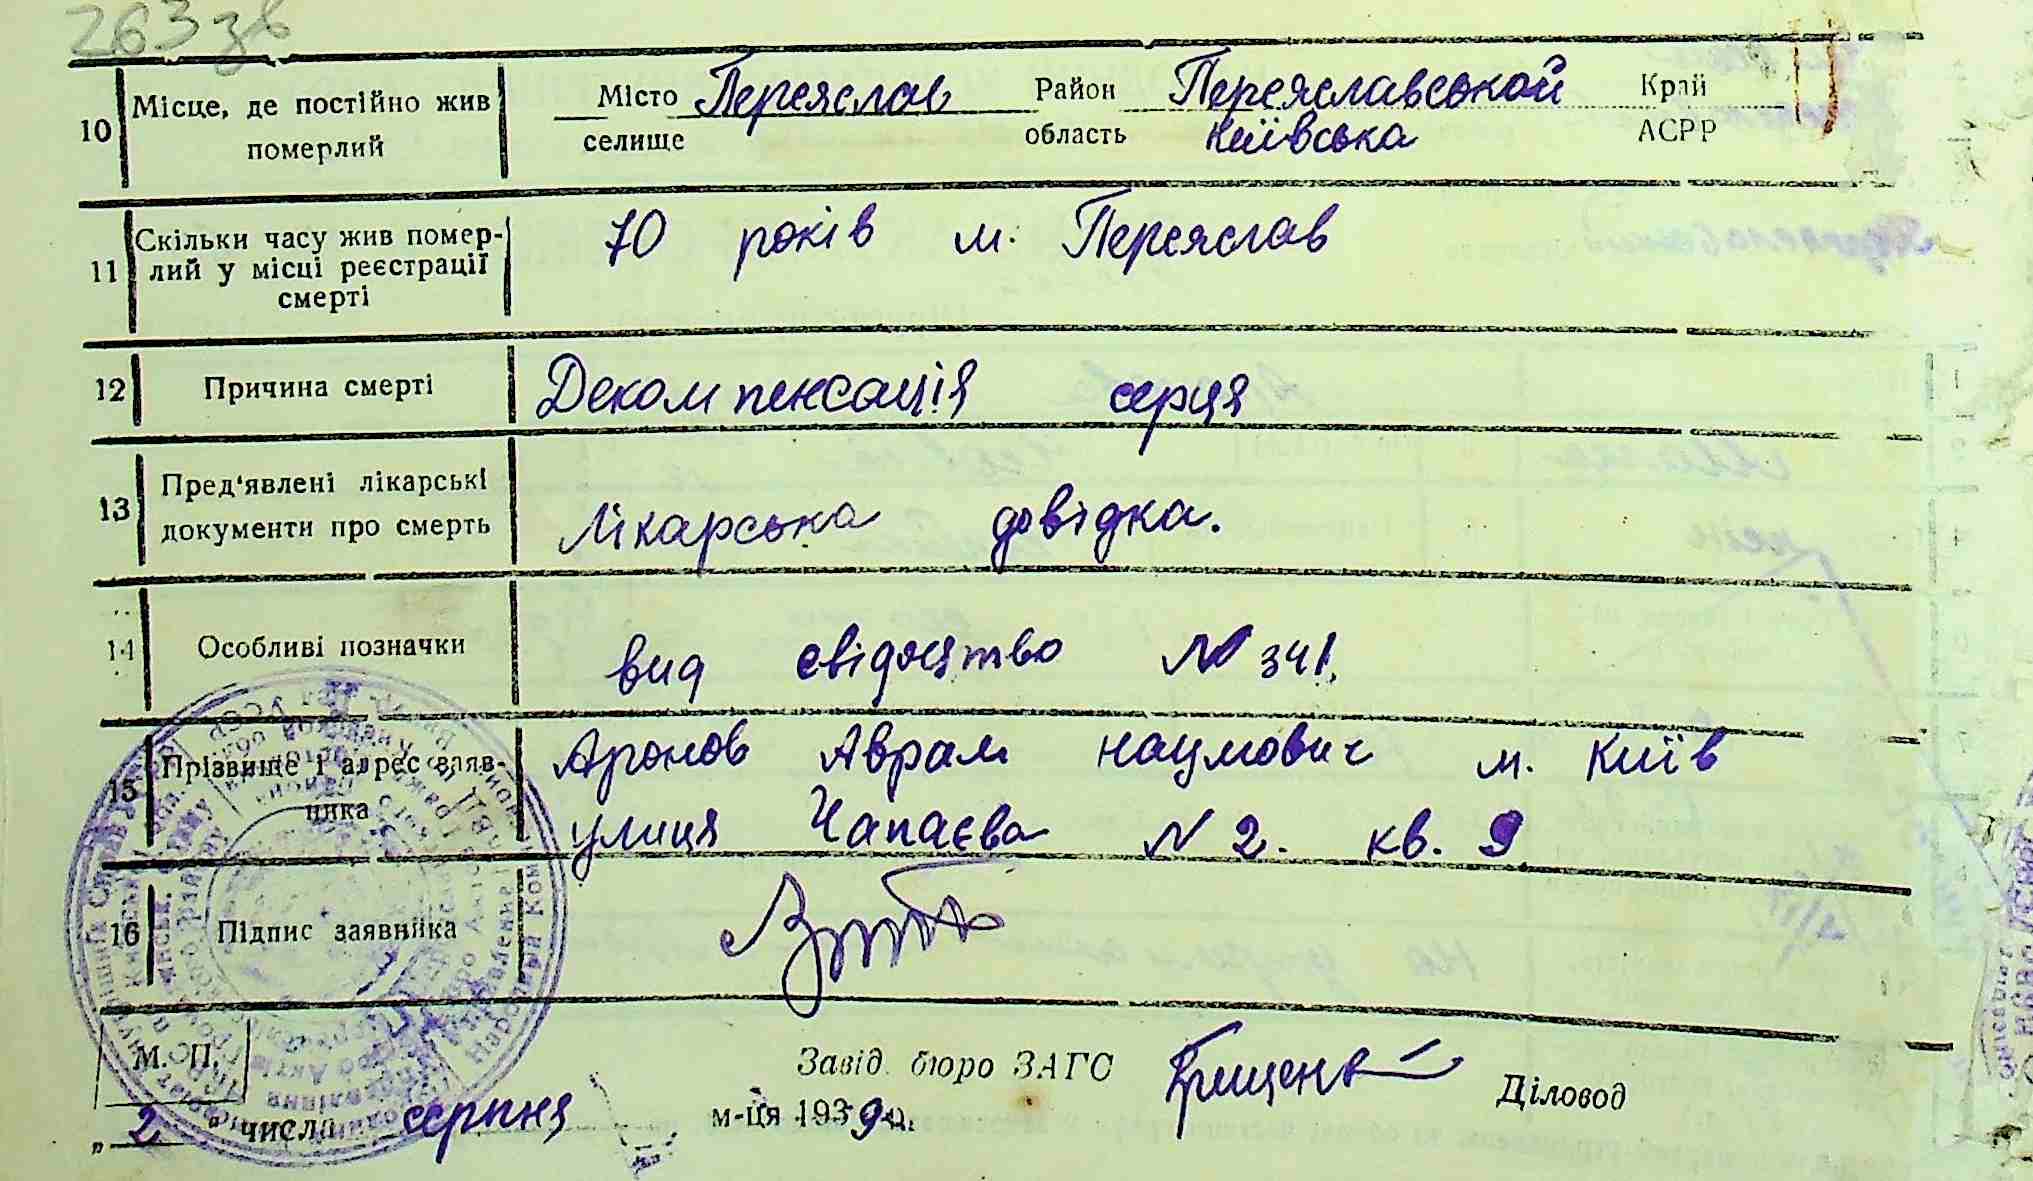 263 зв
10 Місце, де постійно жив померлий Місто селище Переяслав Район Переяславской Край
область Київська АСРР
11 Скільки часу жив помер-
лий у місці реєстрації
смерті
70 років м. Переяслав
12 Причина смерті Декомпенсація серця
13 Пред'явлені лікарські
документи про смерть
Лікарська довідка.
14 Особливі позначки вид свідоцтво № 341.
15 Прізвище і адрес заяв-
ника
Аронов Аврам наумович м. Київ
улиця Чапаєва № 2. кв. 9
16 Підпис заявника
М. П. Завід. бюро ЗАГС Діловод
„ 2 " числа серпня м-ця 1939 р.